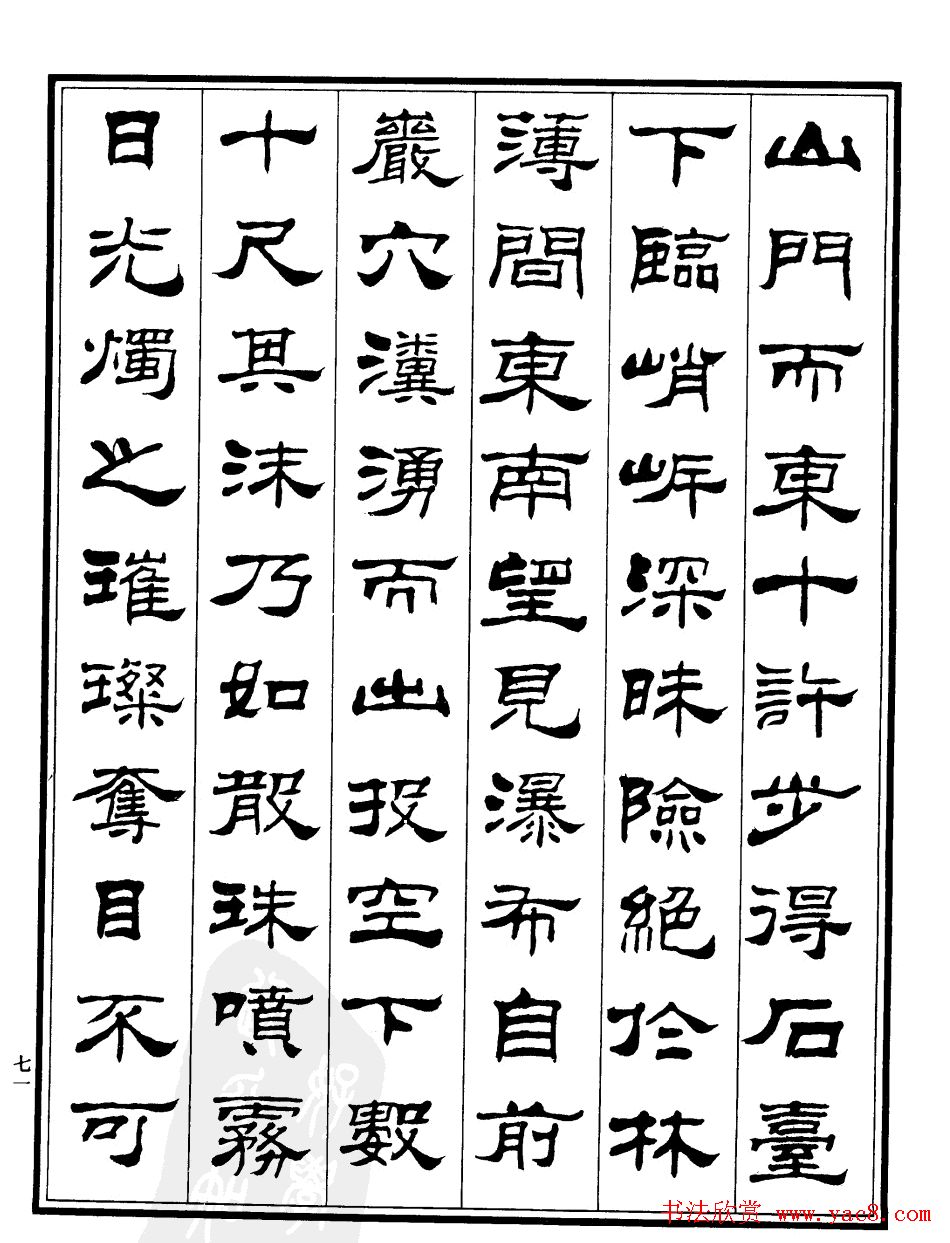 山門而東十許步得石臺
下臨峭岸深昧險絕於林
薄間東南望見瀑布自前
巖穴瀵湧而出投空下數
十尺其沫乃如散珠噴霧
日光燭之璀璨奪目不可
七一
书法欣赏 www.yac8.com